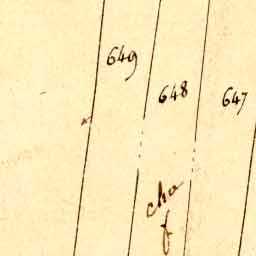 649
648
647
cha
f